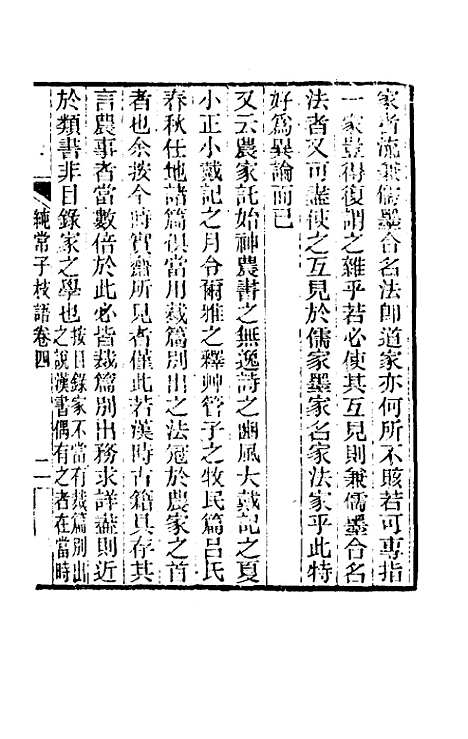 家者流兼儒墨合名法卽道家亦何所不賅若可專指
一家豈得復謂之雜乎若必使其互見則兼儒墨合名
法者又可盡使之互見於儒家墨家名家法家乎此特
好爲異論而已
又云農家託始神農書之無逸詩之豳風大戴記之夏
小正小戴記之月令爾雅之釋艸管子之牧民篇呂氏
春秋任地諸篇俱當用裁篇別出之法冠於農家之首
者也余按今時實齋所見者僅此若漢時古籍具存其
言農事者當數倍於此必皆裁篇別出務求詳盡則近
於類書非目錄家之學也按目錄家不當有裁篇別出
之說漢書偶有之者在當時
純常子枝語卷四
二